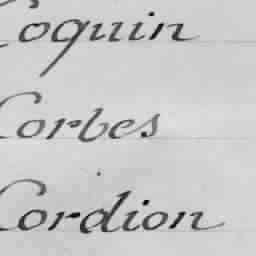 Coquin
Corbes
Cordion